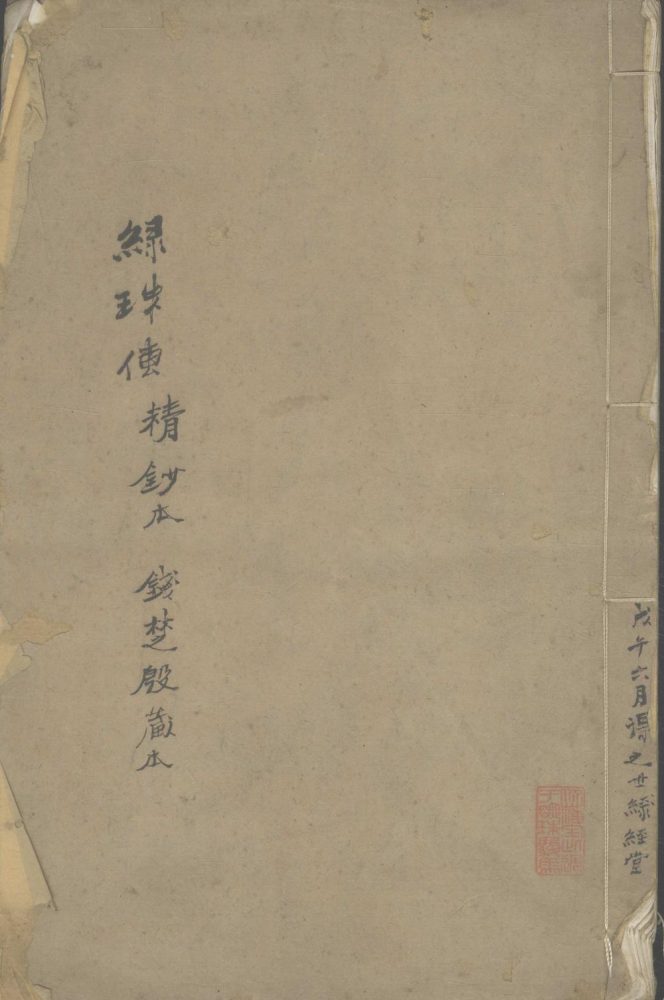 戊午六月得之世綵經堂
綠珠傳精鈔本 錢楚殷藏本